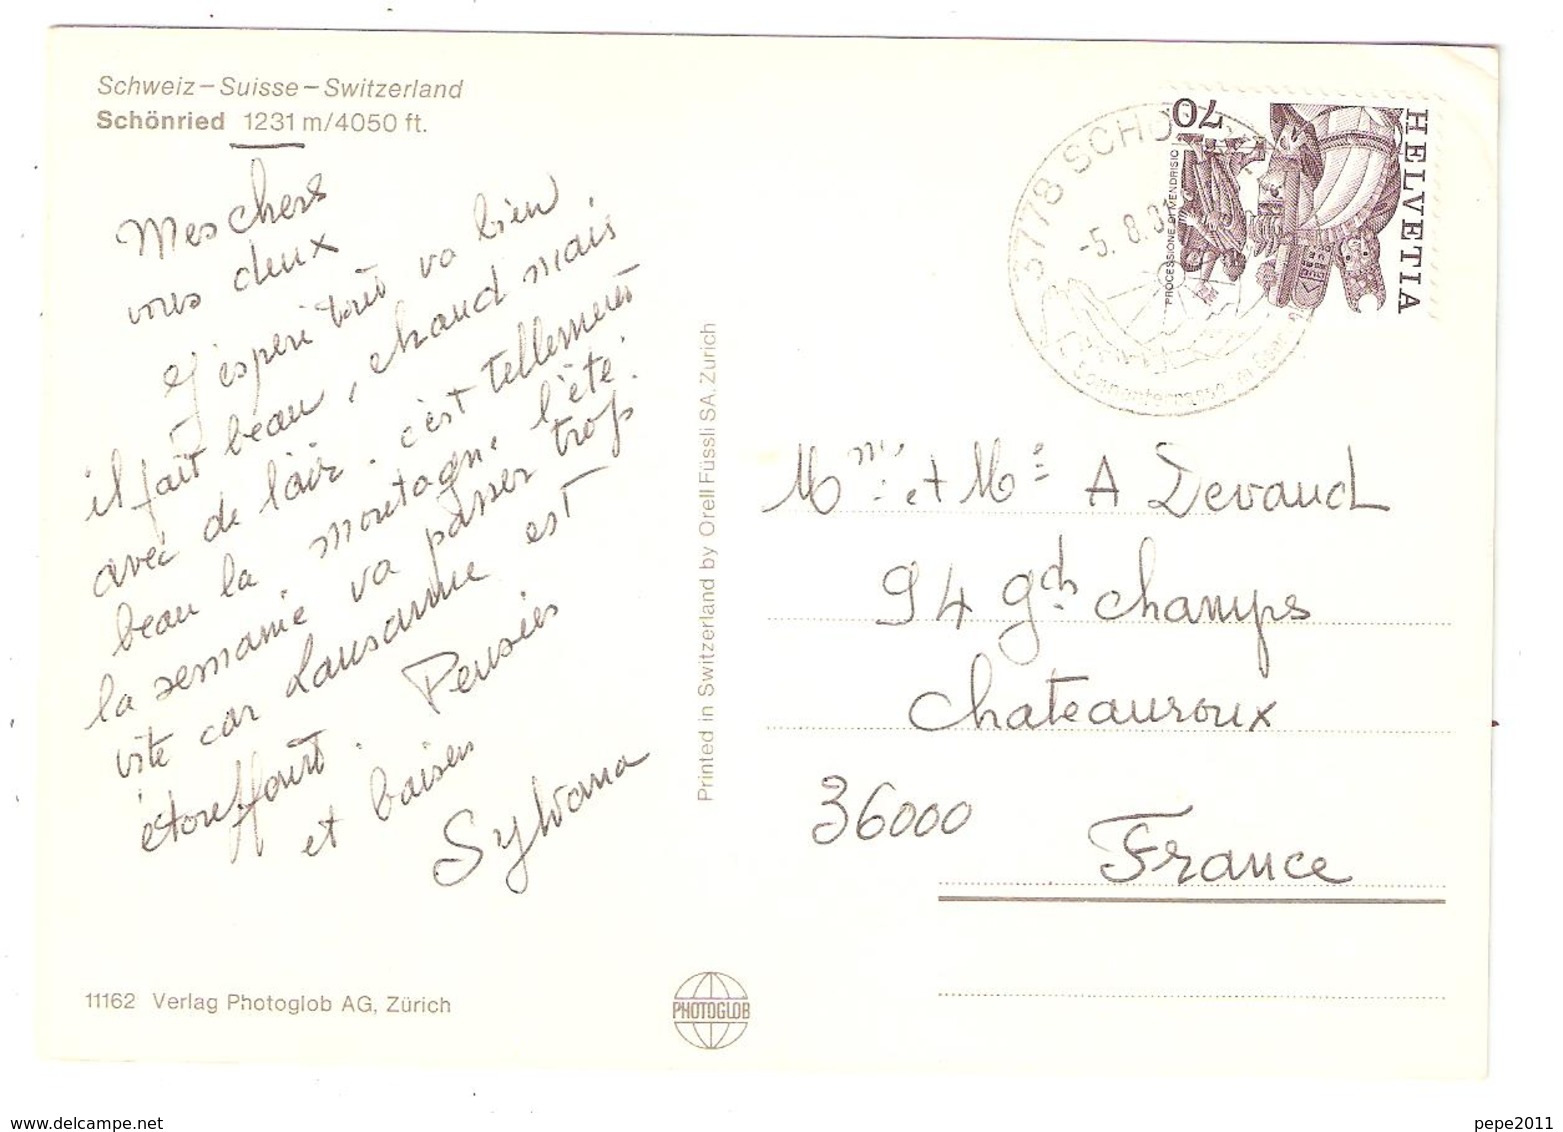 Schweiz – Suisse – Switzerland
Schönried 1231 m/4050 ft.
Mes chers
vous deux
J'espère tout va bien
il fait beau, chaud mais
avec de l'air. c'est tellement
beau la montagne l'été.
la semaine va passer trop
vite car Lausanne est
étouffant. Pensées
et baisers
Sylvana
11162 Verlag Photoglob AG, Zürich
Printed in Switzerland by Orell Füssli SA, Zurich
PHOTOGLOB
3778 SCHÖ
-5.8.81
HELVETIA
70
PROCESSIONE DI MENDRISIO
Mme et Mr A Devaud
94 gde champs
Chateauroux
36000
France
delcampe.net
pepe2011